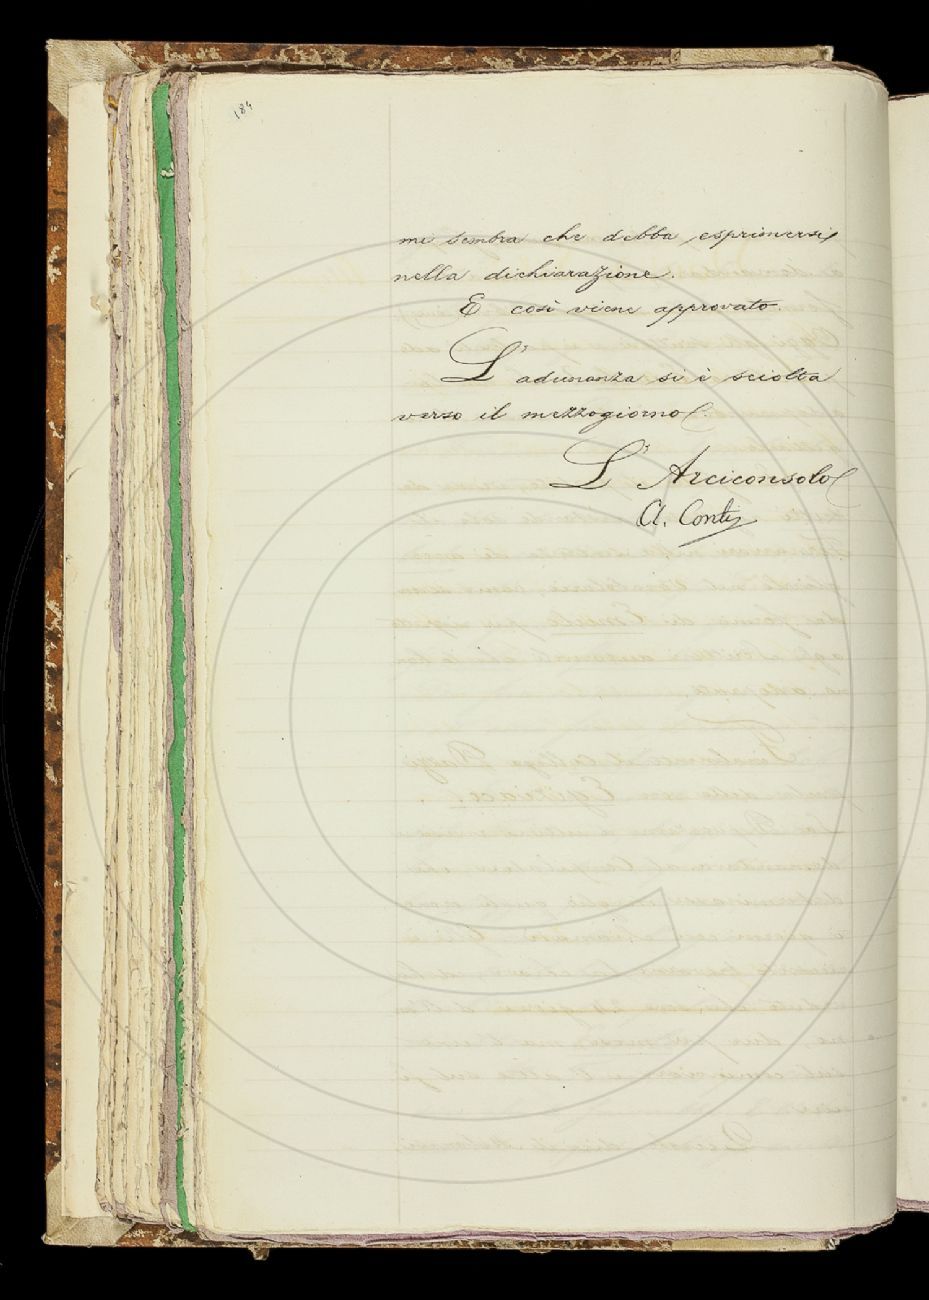 184
mi sembra che debba esprimersi
nella dichiarazione.
E così viene approvato.
L'adunanza si è sciolta
verso il mezzogiorno.
L'Arciconsolo
A. Conti